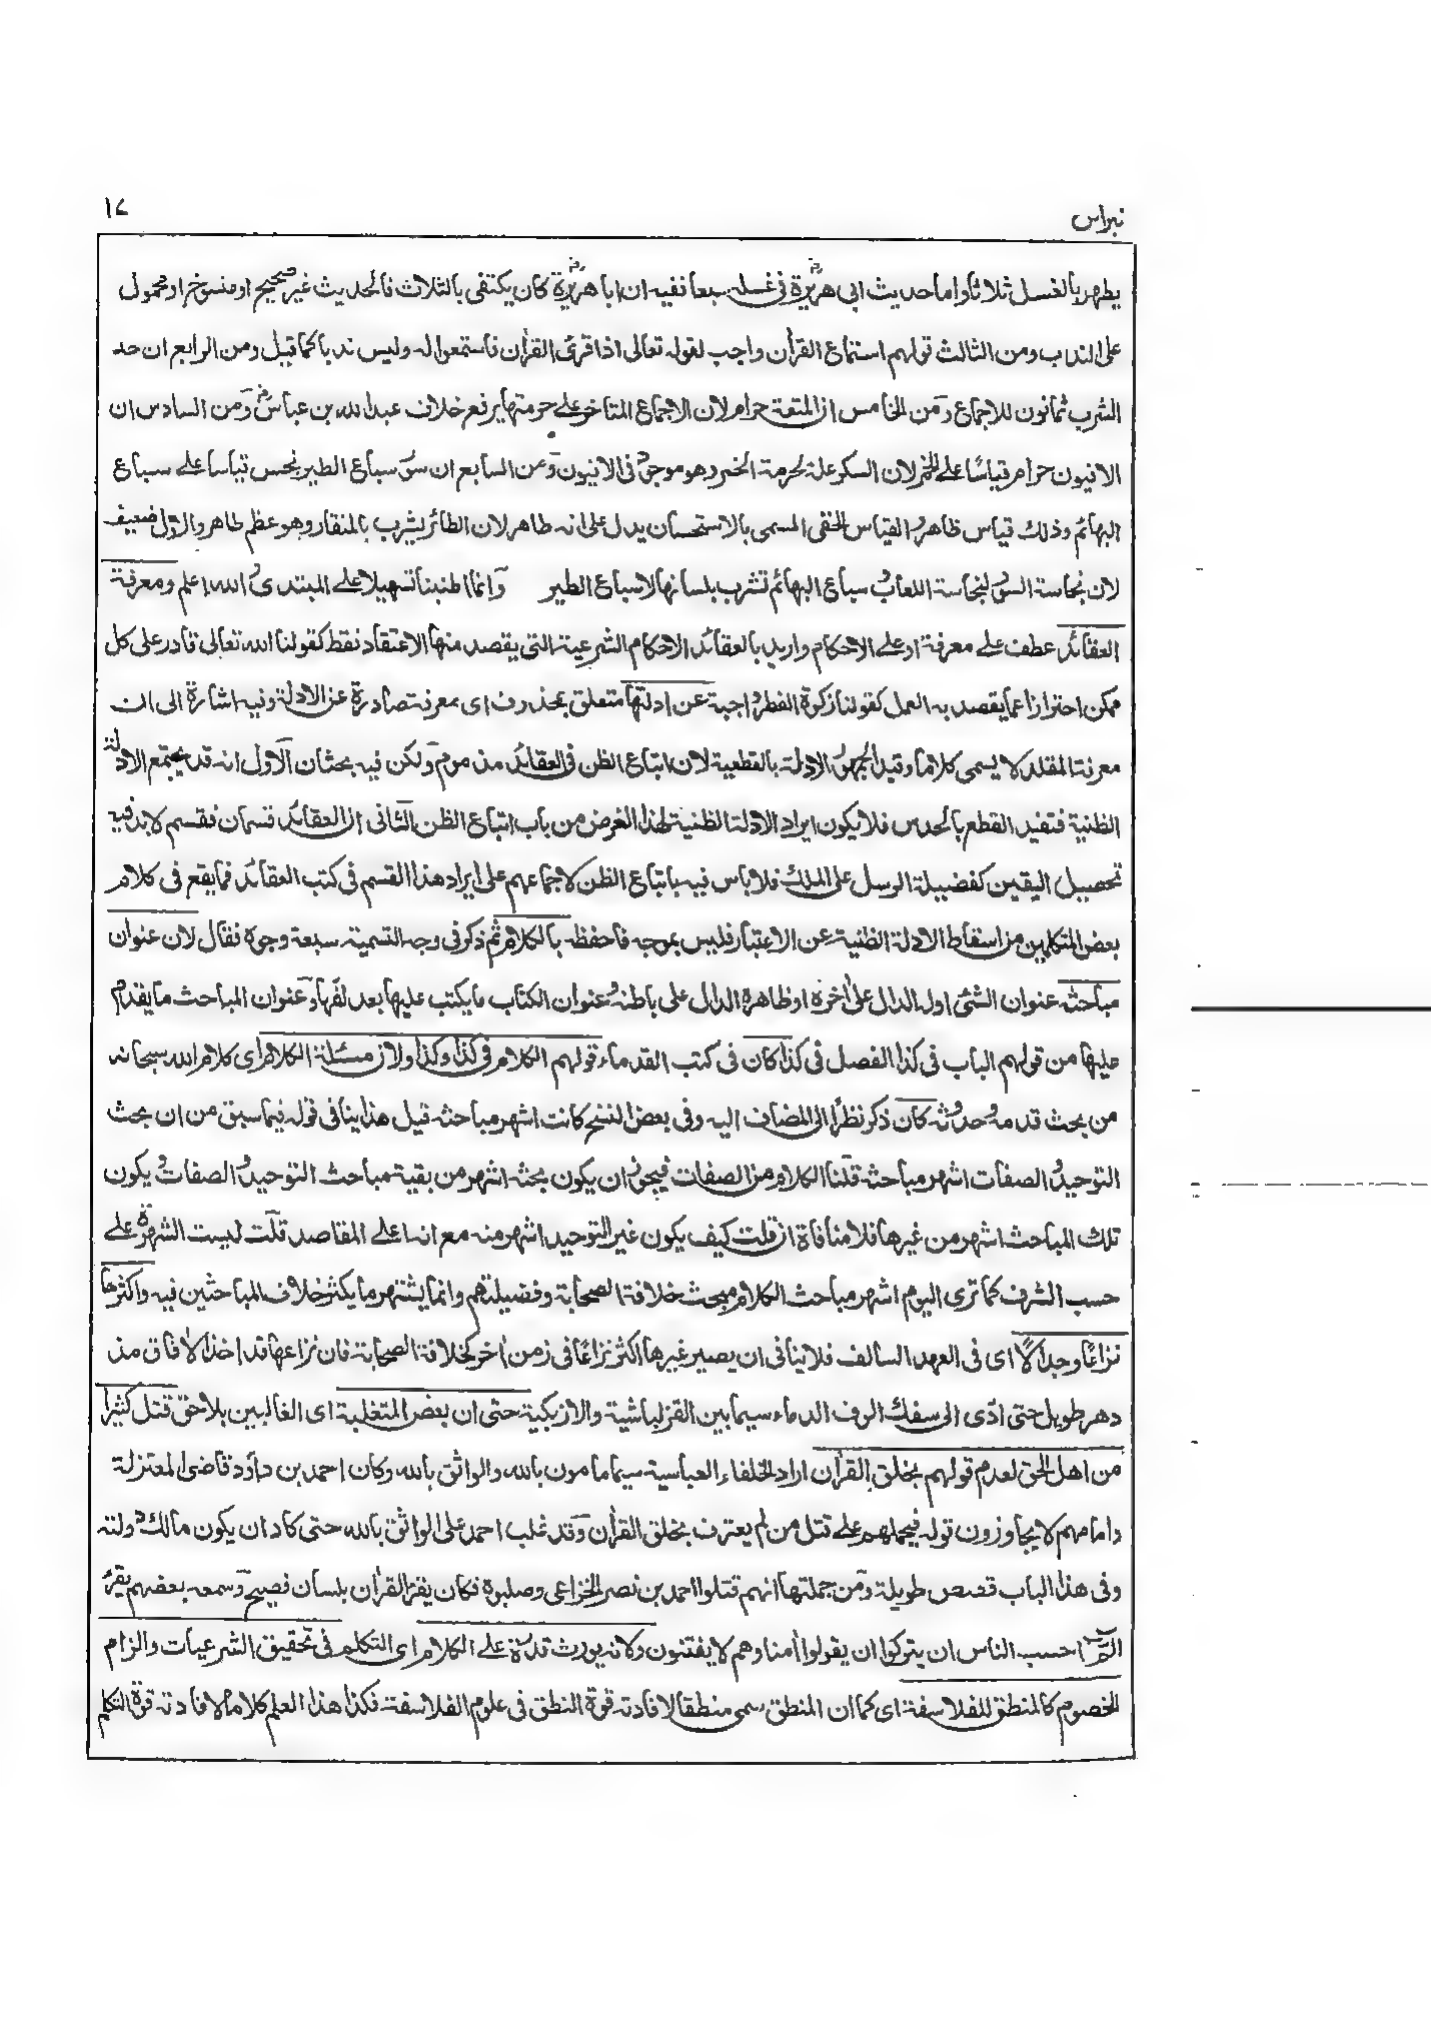 نبراس
١٤
يطهر بالغسل ثلاثا واما حديث ابى هريرة فى غسله سبعا ففيه ان ابا هريرة كان يكتفى بالثلاث فالحديث غير صحيح او منسوخ او محمول
على الندب ومن الثالث قولهم استماع القرأن واجب لقوله تعالى اذا قرئ القرأن فاستمعوا له وليس ندبا كما قيل ومن الرابع ان حد
الشرب ثمانون للاجماع ومن الخامس ان المتعة حرام لان الاجماع المتاخر على حرمتها يرفع خلاف عبد الله بن عباس ومن السادس ان
الافيون حرام قياسًا على الخمر لان السكر علة لحرمة الخمر وهو موجود فى الافيون ومن السابع ان سور سباع الطير نجس قياسا على سباع
البهائم وذلك قياس ظاهر والقياس الخفى المسمى بالاستحسان يدل على انه طاهر لان الطائر يشرب بالمنقار وهو عظم طاهر والاول ضعيف
لان نجاسة السور لنجاسة اللعاب وسباع البهائم تشرب بلسانها لا سباع الطير وانما اطنبنا تسهيلا على المبتدى والله اعلم ومعرفة
العقائد عطف على معرفة او على الاحكام واريد بالعقائد الاحكام الشرعية التى يقصد منها الاعتقاد فقط كقولنا الله تعالى قادر على كل
ممكن احترازا عما يقصد به العمل كقولنا زكوة الفطر واجبة عن ادلتها متعلق بمحذوف اى بمعرفة صادرة عن الادلة وفيه اشارة الى ان
معرفة المقلد لا يسمى كلاما وقيد الجمهور الادلة بالقطعية لان اتباع الظن فى العقائد مذموم ولكن فيه بحثان الاول انه قد يجتمع الادلة
الظنية فتفيد القطع بالحدس فلا يكون ايراد الادلة الظنية لهذا الغرض من باب اتباع الظن الثانى ان العقائد قسمان فقسم لابد فيه
تحصيل اليقين كفضيلة الرسل على الملك فلا باس فيه باتباع الظن لاجماعهم على ايراد هذا القسم فى كتب العقائد فما يقع فى كلام
بعض المتكلمين من اسقاط الادلة الظنية عن الاعتبار فليس بموجه فاحفظه بالكلام ثم ذكر فى وجه التسمية سبعة وجوه فقال لان عنوان
مباحثه عنوان الشئ اوله الدال على أخره او ظاهره الدال على باطنه وعنوان الكتاب ما يكتب عليها بعد لفها وعنوان المباحث ما يقدم
عليها من قولهم الباب فى كذا الفصل فى كذا كان فى كتب القدماء قولهم الكلام فى كذا وكذا ولان مسئلة الكلام اى كلام الله سبحانه
من بحث قدمه وحدوثه كان ذكر نظرًا الى المضاف اليه وفى بعض النسخ كانت اشهر مباحثه قيل هذا ينافى قوله فيما سبق من ان بحث
التوحيد والصفات اشهر مباحثه قلنا الكلام من الصفات فيجوز ان يكون بحثه اشهر من بقية مباحث التوحيد والصفات ويكون
تلك المباحث اشهر من غيرها فلا منافاة ان قلت كيف يكون غير التوحيد اشهر منه مع انه اعلى المقاصد قلت ليست الشهرة على
حسب الشرف كما ترى اليوم اشهر مباحث الكلام مبحث خلافة الصحابة وفضيلتهم وانما يشتهر ما يكثر خلاف المباحثين فيه واكثرها
نزاعًا وجدالًا اى فى العهد السالف فلا ينافى ان يصير غيرها اكثر نزاعًا فى زمن أخر كخلافة الصحابة فان نزاعها قد اخذ الأفاق منذ
دهر طويل حتى ادّى الى سفك الوف الدماء سيما بين القزلباشية والازبكية حتى ان بعض المتغلبة اى الغالبين بلا حق قتل كثيرا
من اهل الحق لعدم قولهم بخلق القرأن اراد الخلفاء العباسية سيما مامون بالله والواثق بالله وكان احمد بن داؤد قاضى المعتزلة
وامامهم لا يجاوزون قوله فيحملهم على قتل من لم يعترف بخلق القرأن وقد غلب احمد على الواثق بالله حتى كاد ان يكون مالك دولته
وفى هذا الباب قصص طويلة ومن جملتها انهم قتلوا احمد بن نصر الخزاعى وصلبوه فكان يقرأ القرأن بلسان فصيح وسمعه بعضهم يقرأ
الٓمّٓ احسب الناس ان يتركوا ان يقولوا أمنا وهم لا يفتنون ولانه يورث قدرة على الكلام اى التكلم فى تحقيق الشرعيات والزام
الخصوم كالمنطق للفلاسفة اى كما ان المنطق سمى منطقا لافادته قوة النطق فى علوم الفلاسفة فكذا هذا العلم كلاما لافادته قوة التكلم